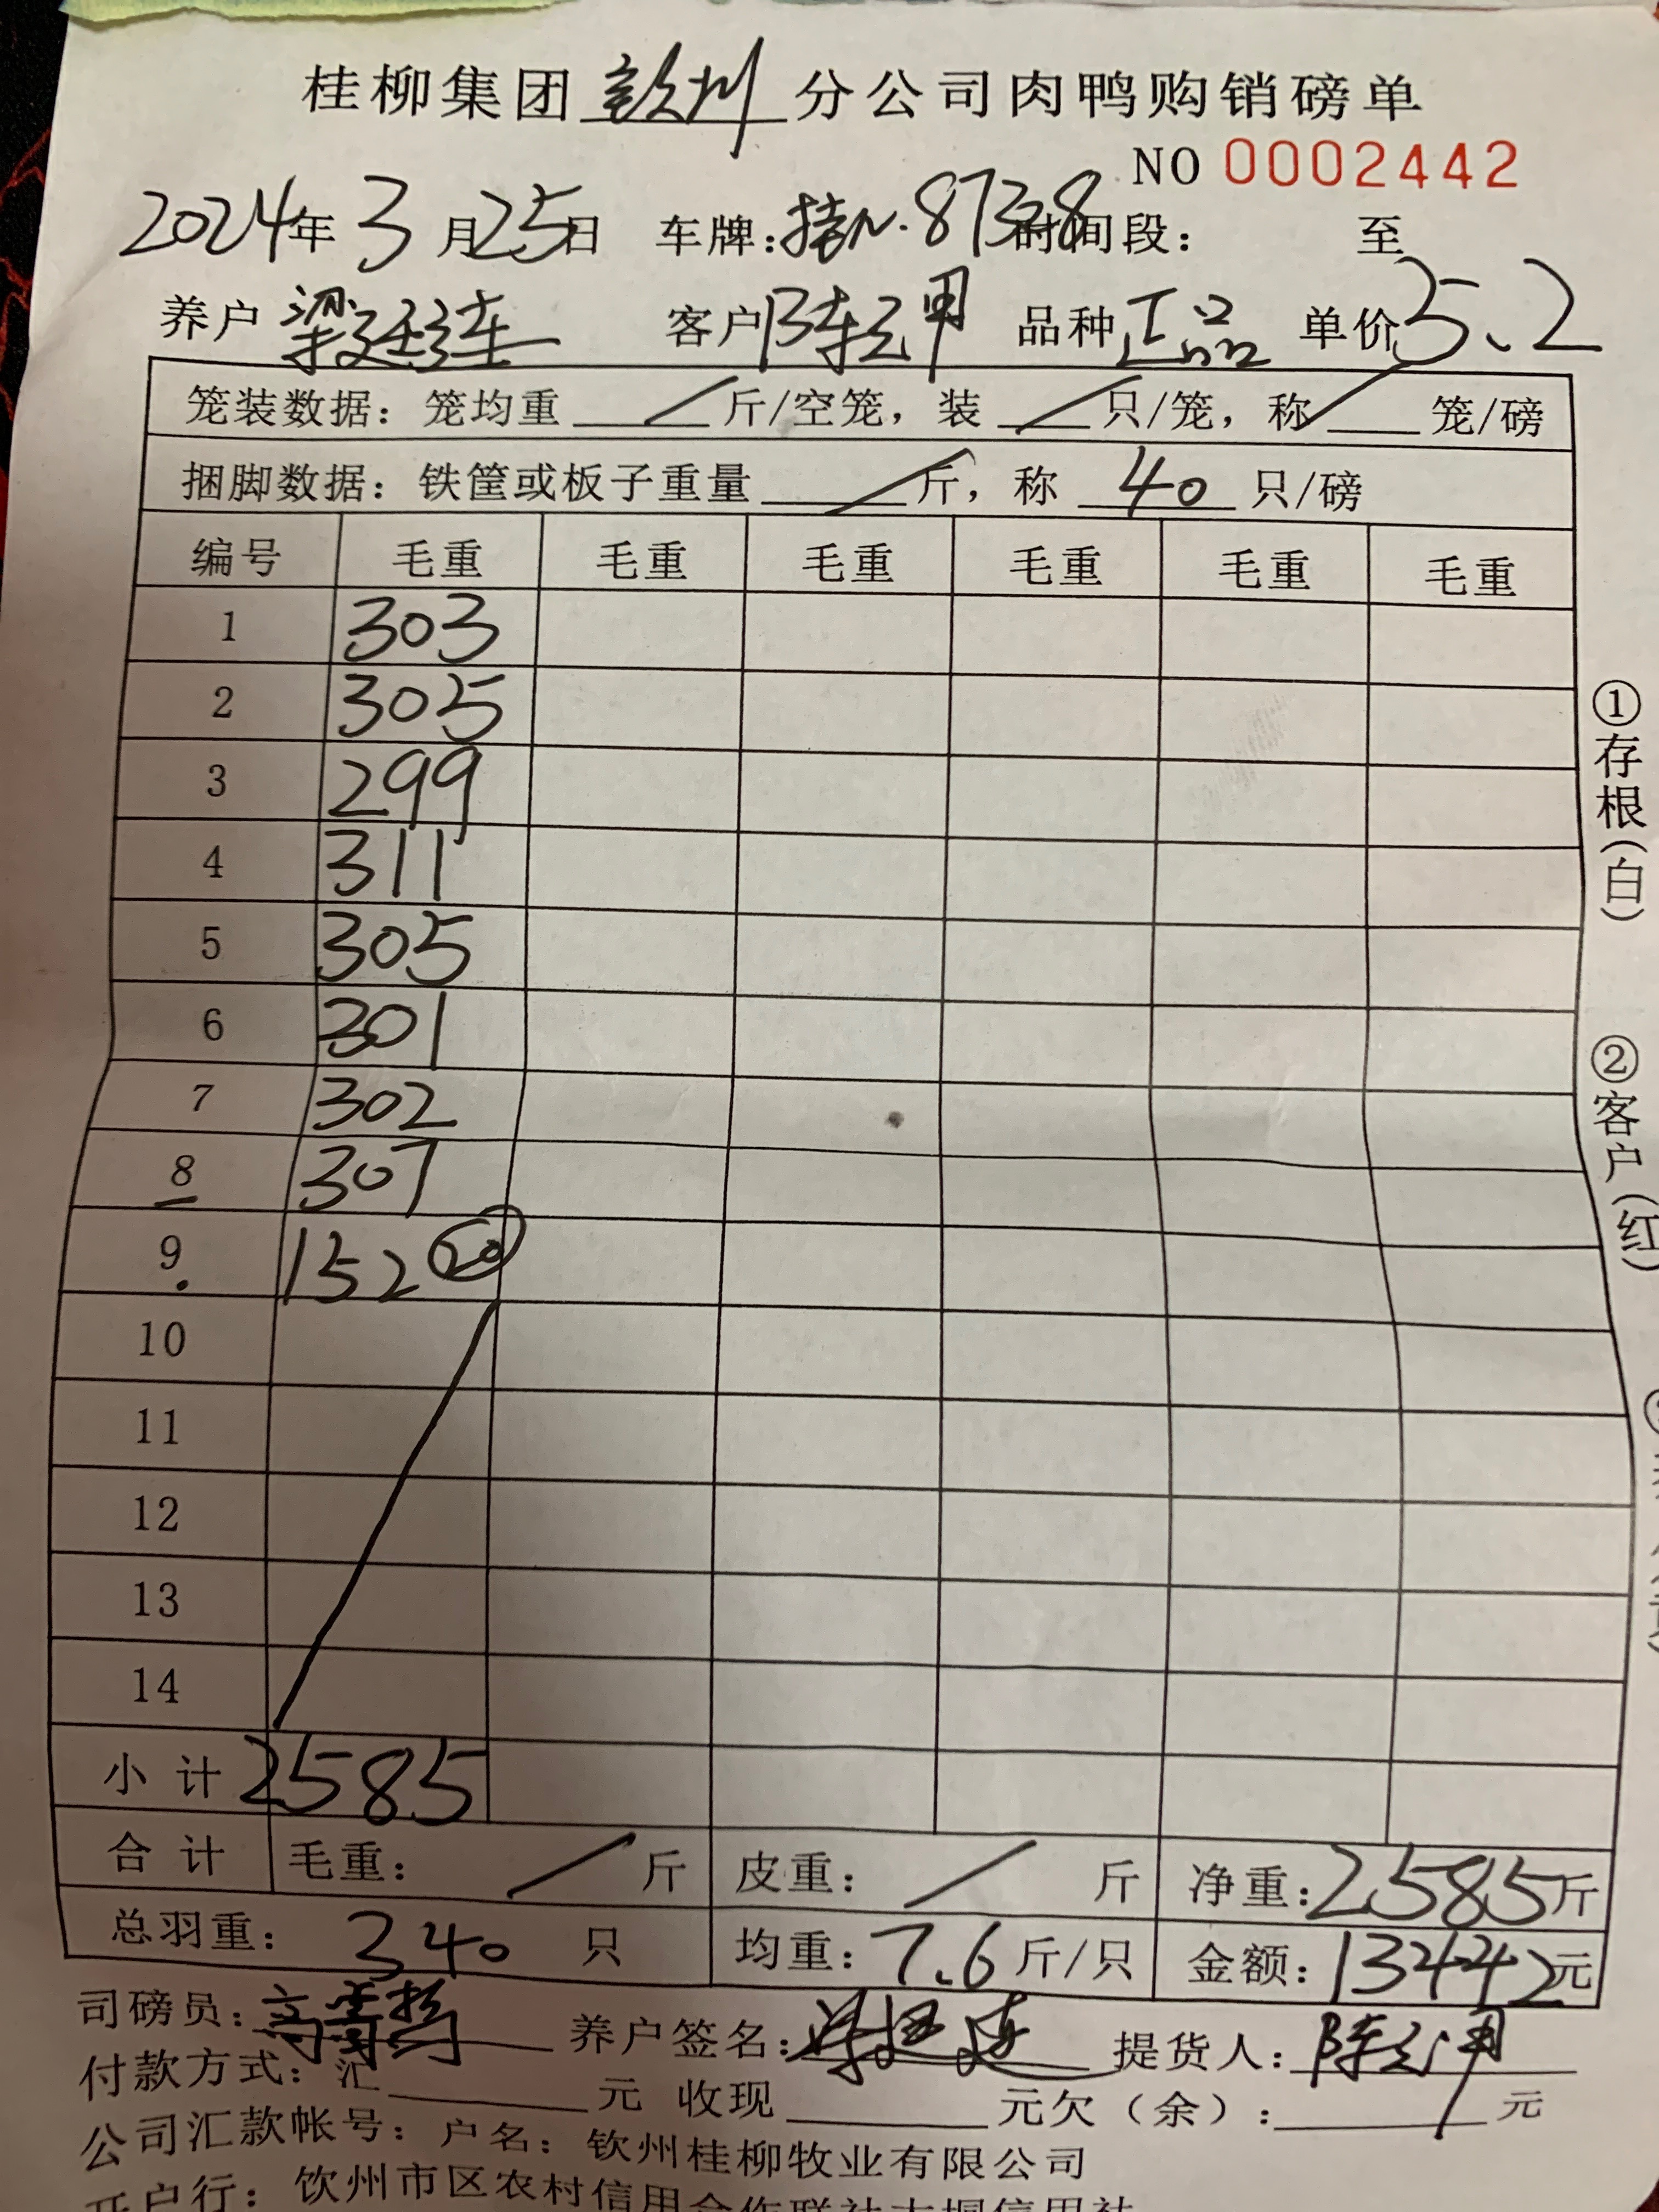 桂柳集团钦州分公司肉鸭购销磅单
NO 0002442
2024年3月25日 车牌:桂N.87328时间段: 至
养户梁廷连 客户陈云甲 品种正品 单价5.2
笼装数据: 笼均重 / 斤/空笼, 装 / 只/笼, 称 / 笼/磅
捆脚数据: 铁筐或板子重量 / 斤, 称 40 只/磅
编号 毛重 毛重 毛重 毛重 毛重 毛重
1 303
2 305
3 299
4 311
5 305
6 301
7 302
8 307
9 152 20
10
11
12
13
14
小计 2585
合计 毛重: / 斤 皮重: / 斤 净重:2585斤
总羽重: 340 只 均重:7.6斤/只 金额:13442元
司磅员: 养户签名: 提货人:
付款方式: 汇 元 收现 元欠(余): 元
公司汇款帐号: 户名: 钦州桂柳牧业有限公司
开户行: 钦州市区农村信用合作联社大垌信用社
①存根(白)
②客户(红)